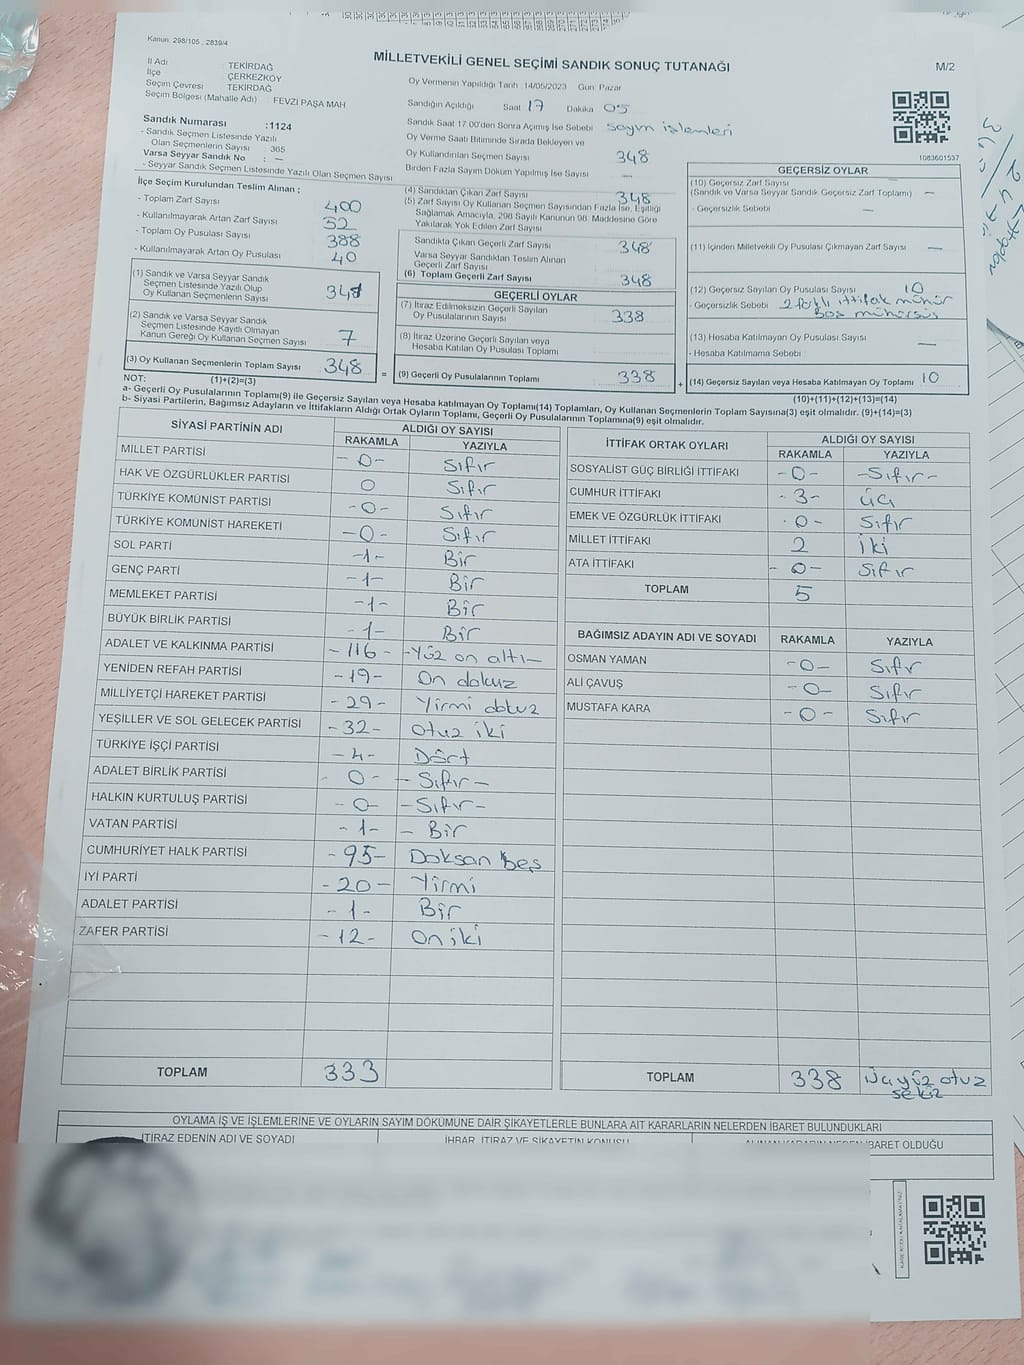 Kanun. 298/105 , 2839/4
MİLLETVEKİLİ GENEL SEÇİMİ SANDIK SONUÇ TUTANAĞI
M/2
İl Adı : TEKİRDAĞ
İlçe : ÇERKEZKÖY
Seçim Çevresi TEKİRDAĞ
Seçim Bölgesi (Mahalle Adı) FEVZİ PAŞA MAH
Sandık Numarası :1124
- Sandık Seçmen Listesinde Yazılı
Olan Seçmenlerin Sayısı : 365
Varsa Seyyar Sandık No : —
- Seyyar Sandık Seçmen Listesinde Yazılı Olan Seçmen Sayısı
Oy Vermenin Yapıldığı Tarih :14/05/2023 Gün Pazar
Sandığın Açıldığı Saat 17 Dakika 05
Sandık Saat 17.00'den Sonra Açılmış İse Sebebi sayım işlemleri
Oy Verme Saati Bitiminde Sırada Bekleyen ve
Oy Kullandırılan Seçmen Sayısı 348
Birden Fazla Sayım Döküm Yapılmış İse Sayısı —
1083601537
İlçe Seçim Kurulundan Teslim Alınan ;
- Toplam Zarf Sayısı 400
- Kullanılmayarak Artan Zarf Sayısı 52
- Toplam Oy Pusulası Sayısı 388
- Kullanılmayarak Artan Oy Pusulası 40
(1) Sandık ve Varsa Seyyar Sandık
Seçmen Listesinde Yazılı Olup
Oy Kullanan Seçmenlerin Sayısı 341
(2) Sandık ve Varsa Seyyar Sandık
Seçmen Listesinde Kayıtlı Olmayan
Kanun Gereği Oy Kullanan Seçmen Sayısı 7
(3) Oy Kullanan Seçmenlerin Toplam Sayısı 348
(1)+(2)=(3)
(4) Sandıktan Çıkan Zarf Sayısı 348
(5) Zarf Sayısı Oy Kullanan Seçmen Sayısından Fazla İse, Eşitliği
Sağlamak Amacıyla, 298 Sayılı Kanunun 98. Maddesine Göre
Yakılarak Yok Edilen Zarf Sayısı
Sandıkta Çıkan Geçerli Zarf Sayısı 348
Varsa Seyyar Sandıktan Teslim Alınan
Geçerli Zarf Sayısı
(6) Toplam Geçerli Zarf Sayısı 348
GEÇERLİ OYLAR
(7) İtiraz Edilmeksizin Geçerli Sayılan
Oy Pusulalarının Sayısı 338
(8) İtiraz Üzerine Geçerli Sayılan veya
Hesaba Katılan Oy Pusulası Toplamı
= (9) Geçerli Oy Pusulalarının Toplamı 338 +
GEÇERSİZ OYLAR
(10) Geçersiz Zarf Sayısı
(Sandık ve Varsa Seyyar Sandık Geçersiz Zarf Toplamı) —
- Geçersizlik Sebebi —
(11) İçinden Milletvekili Oy Pusulası Çıkmayan Zarf Sayısı —
(12) Geçersiz Sayılan Oy Pusulası Sayısı 10
- Geçersizlik Sebebi 2 farklı ittifak mühür
Boş mühürsüs
(13) Hesaba Katılmayan Oy Pusulası Sayısı —
- Hesaba Katılmama Sebebi
(14) Geçersiz Sayılan veya Hesaba Katılmayan Oy Toplamı 10
(10)+(11)+(12)+(13)=(14)
NOT:
a- Geçerli Oy Pusulalarının Toplamı(9) ile Geçersiz Sayılan veya Hesaba katılmayan Oy Toplamı(14) Toplamları, Oy Kullanan Seçmenlerin Toplam Sayısına(3) eşit olmalıdır. (9)+(14)=(3)
b- Siyasi Partilerin, Bağımsız Adayların ve İttifakların Aldığı Ortak Oyların Toplamı, Geçerli Oy Pusulalarının Toplamına(9) eşit olmalıdır.
SİYASİ PARTİNİN ADI ALDIĞI OY SAYISI
RAKAMLA YAZIYLA
MİLLET PARTİSİ -0- Sıfır
HAK VE ÖZGÜRLÜKLER PARTİSİ 0 Sıfır
TÜRKİYE KOMÜNİST PARTİSİ -0- Sıfır
TÜRKİYE KOMÜNİST HAREKETİ -0- Sıfır
SOL PARTİ -1- Bir
GENÇ PARTİ -1- Bir
MEMLEKET PARTİSİ -1- Bir
BÜYÜK BİRLİK PARTİSİ -1- Bir
ADALET VE KALKINMA PARTİSİ -116- -Yüz on altı-
YENİDEN REFAH PARTİSİ -19- On dokuz
MİLLİYETÇİ HAREKET PARTİSİ -29- Yirmi dokuz
YEŞİLLER VE SOL GELECEK PARTİSİ -32- Otuz iki
TÜRKİYE İŞÇİ PARTİSİ -4- Dört
ADALET BİRLİK PARTİSİ -0- -Sıfır-
HALKIN KURTULUŞ PARTİSİ -0- -Sıfır-
VATAN PARTİSİ -1- - Bir
CUMHURİYET HALK PARTİSİ -95- Doksan beş
İYİ PARTİ -20- Yirmi
ADALET PARTİSİ -1- Bir
ZAFER PARTİSİ -12- On iki
TOPLAM 333
İTTİFAK ORTAK OYLARI ALDIĞI OY SAYISI
RAKAMLA YAZIYLA
SOSYALİST GÜÇ BİRLİĞİ İTTİFAKI -0- -Sıfır-
CUMHUR İTTİFAKI -3- üç
EMEK VE ÖZGÜRLÜK İTTİFAKI -0- Sıfır
MİLLET İTTİFAKI 2 iki
ATA İTTİFAKI -0- Sıfır
TOPLAM 5
BAĞIMSIZ ADAYIN ADI VE SOYADI RAKAMLA YAZIYLA
OSMAN YAMAN -0- Sıfır
ALİ ÇAVUŞ -0- Sıfır
MUSTAFA KARA -0- Sıfır
TOPLAM 338 Üçyüz otuz
sekiz
OYLAMA İŞ VE İŞLEMLERİNE VE OYLARIN SAYIM DÖKÜMÜNE DAİR ŞİKAYETLERLE BUNLARA AİT KARARLARIN NELERDEN İBARET BULUNDUKLARI
İTİRAZ EDENİN ADI VE SOYADI İHBAR, İTİRAZ VE ŞİKAYETİN KONUSU ALINAN KARARIN NEDEN İBARET OLDUĞU